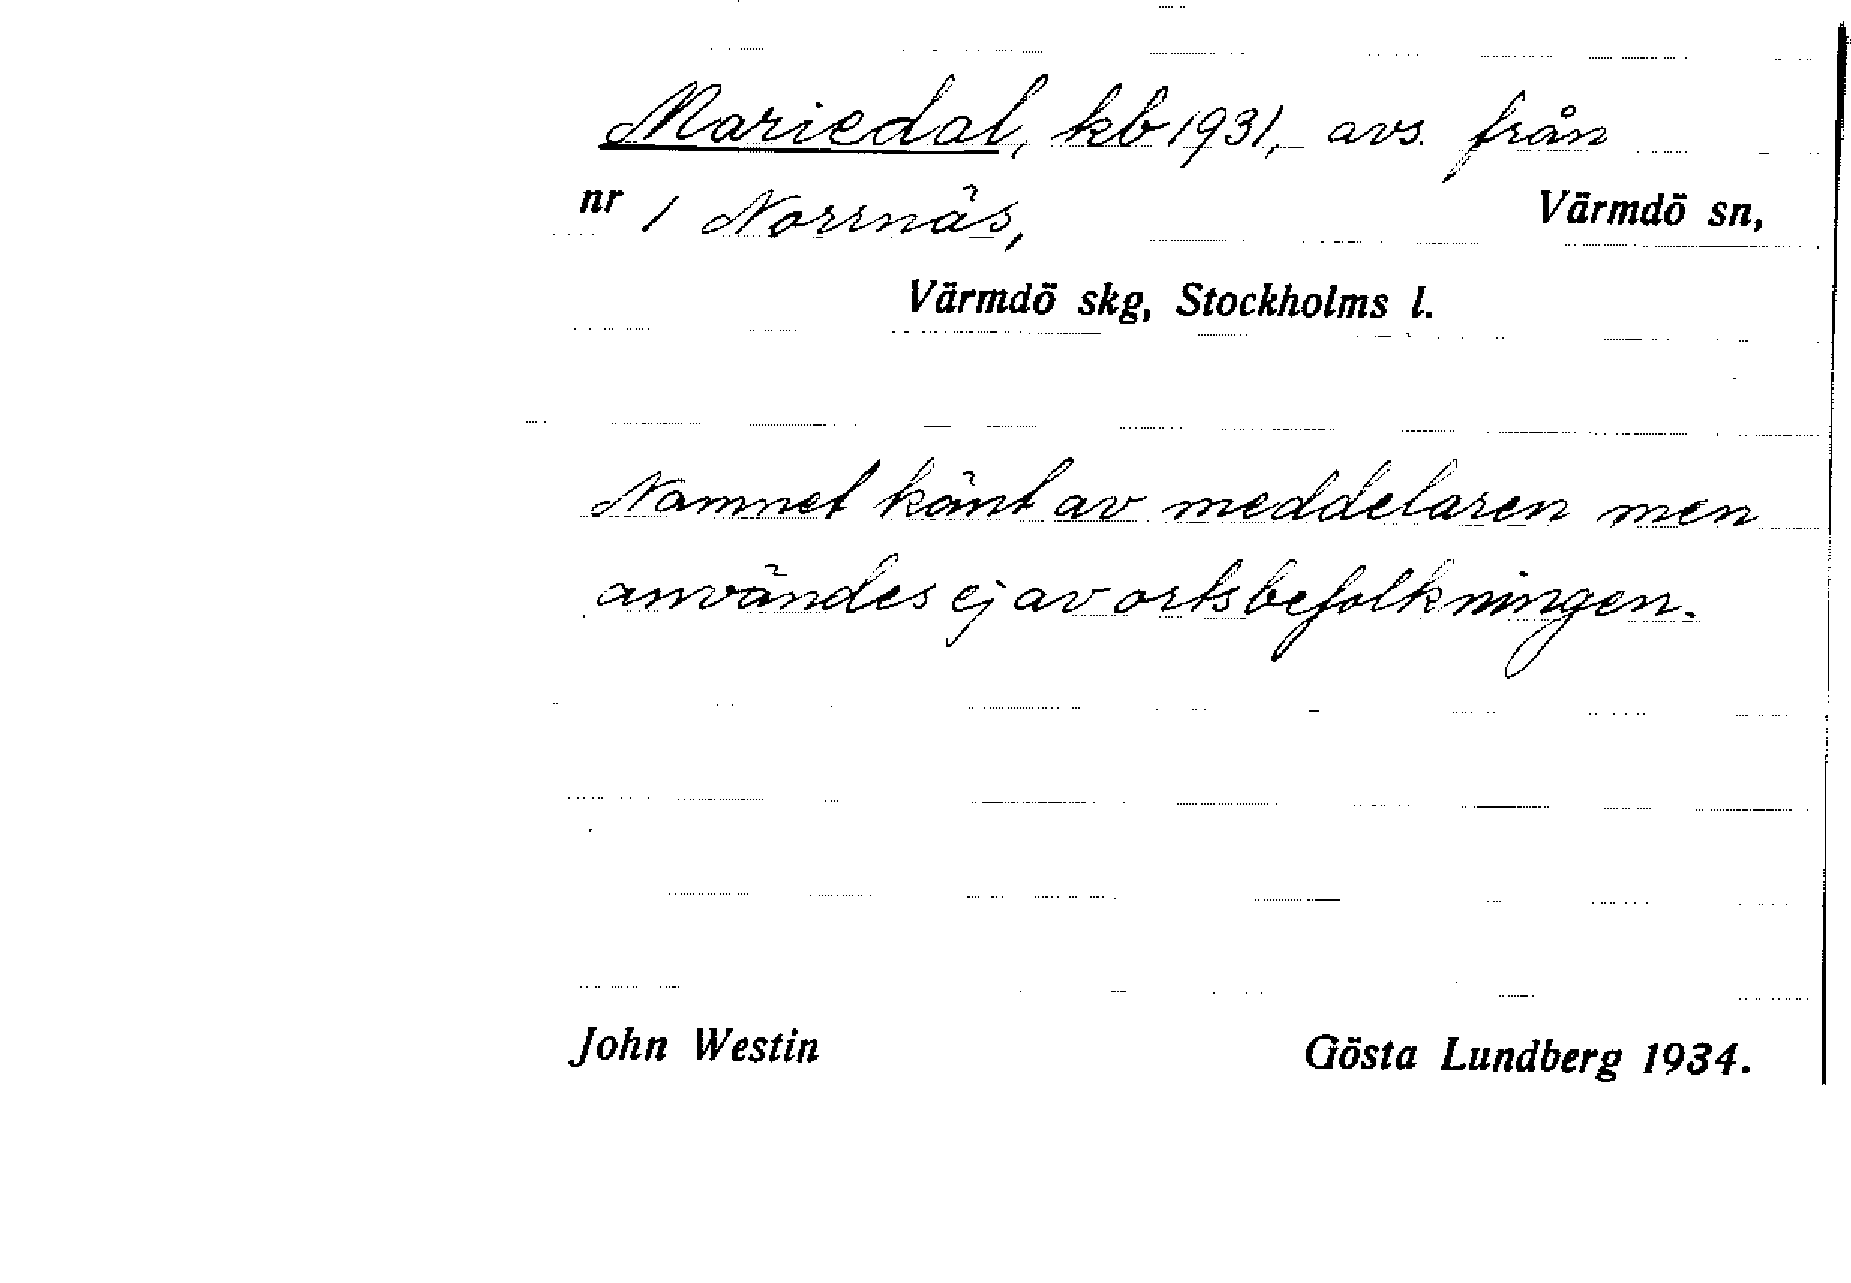 Mariedal, kb 1931, avs. från
nr 1 Norrnäs, Värmdö sn,
Värmdö skg, Stockholms l.
Namnet känt av meddelaren men
användes ej av ortsbefolkningen.
John Westin Gösta Lundberg 1934.